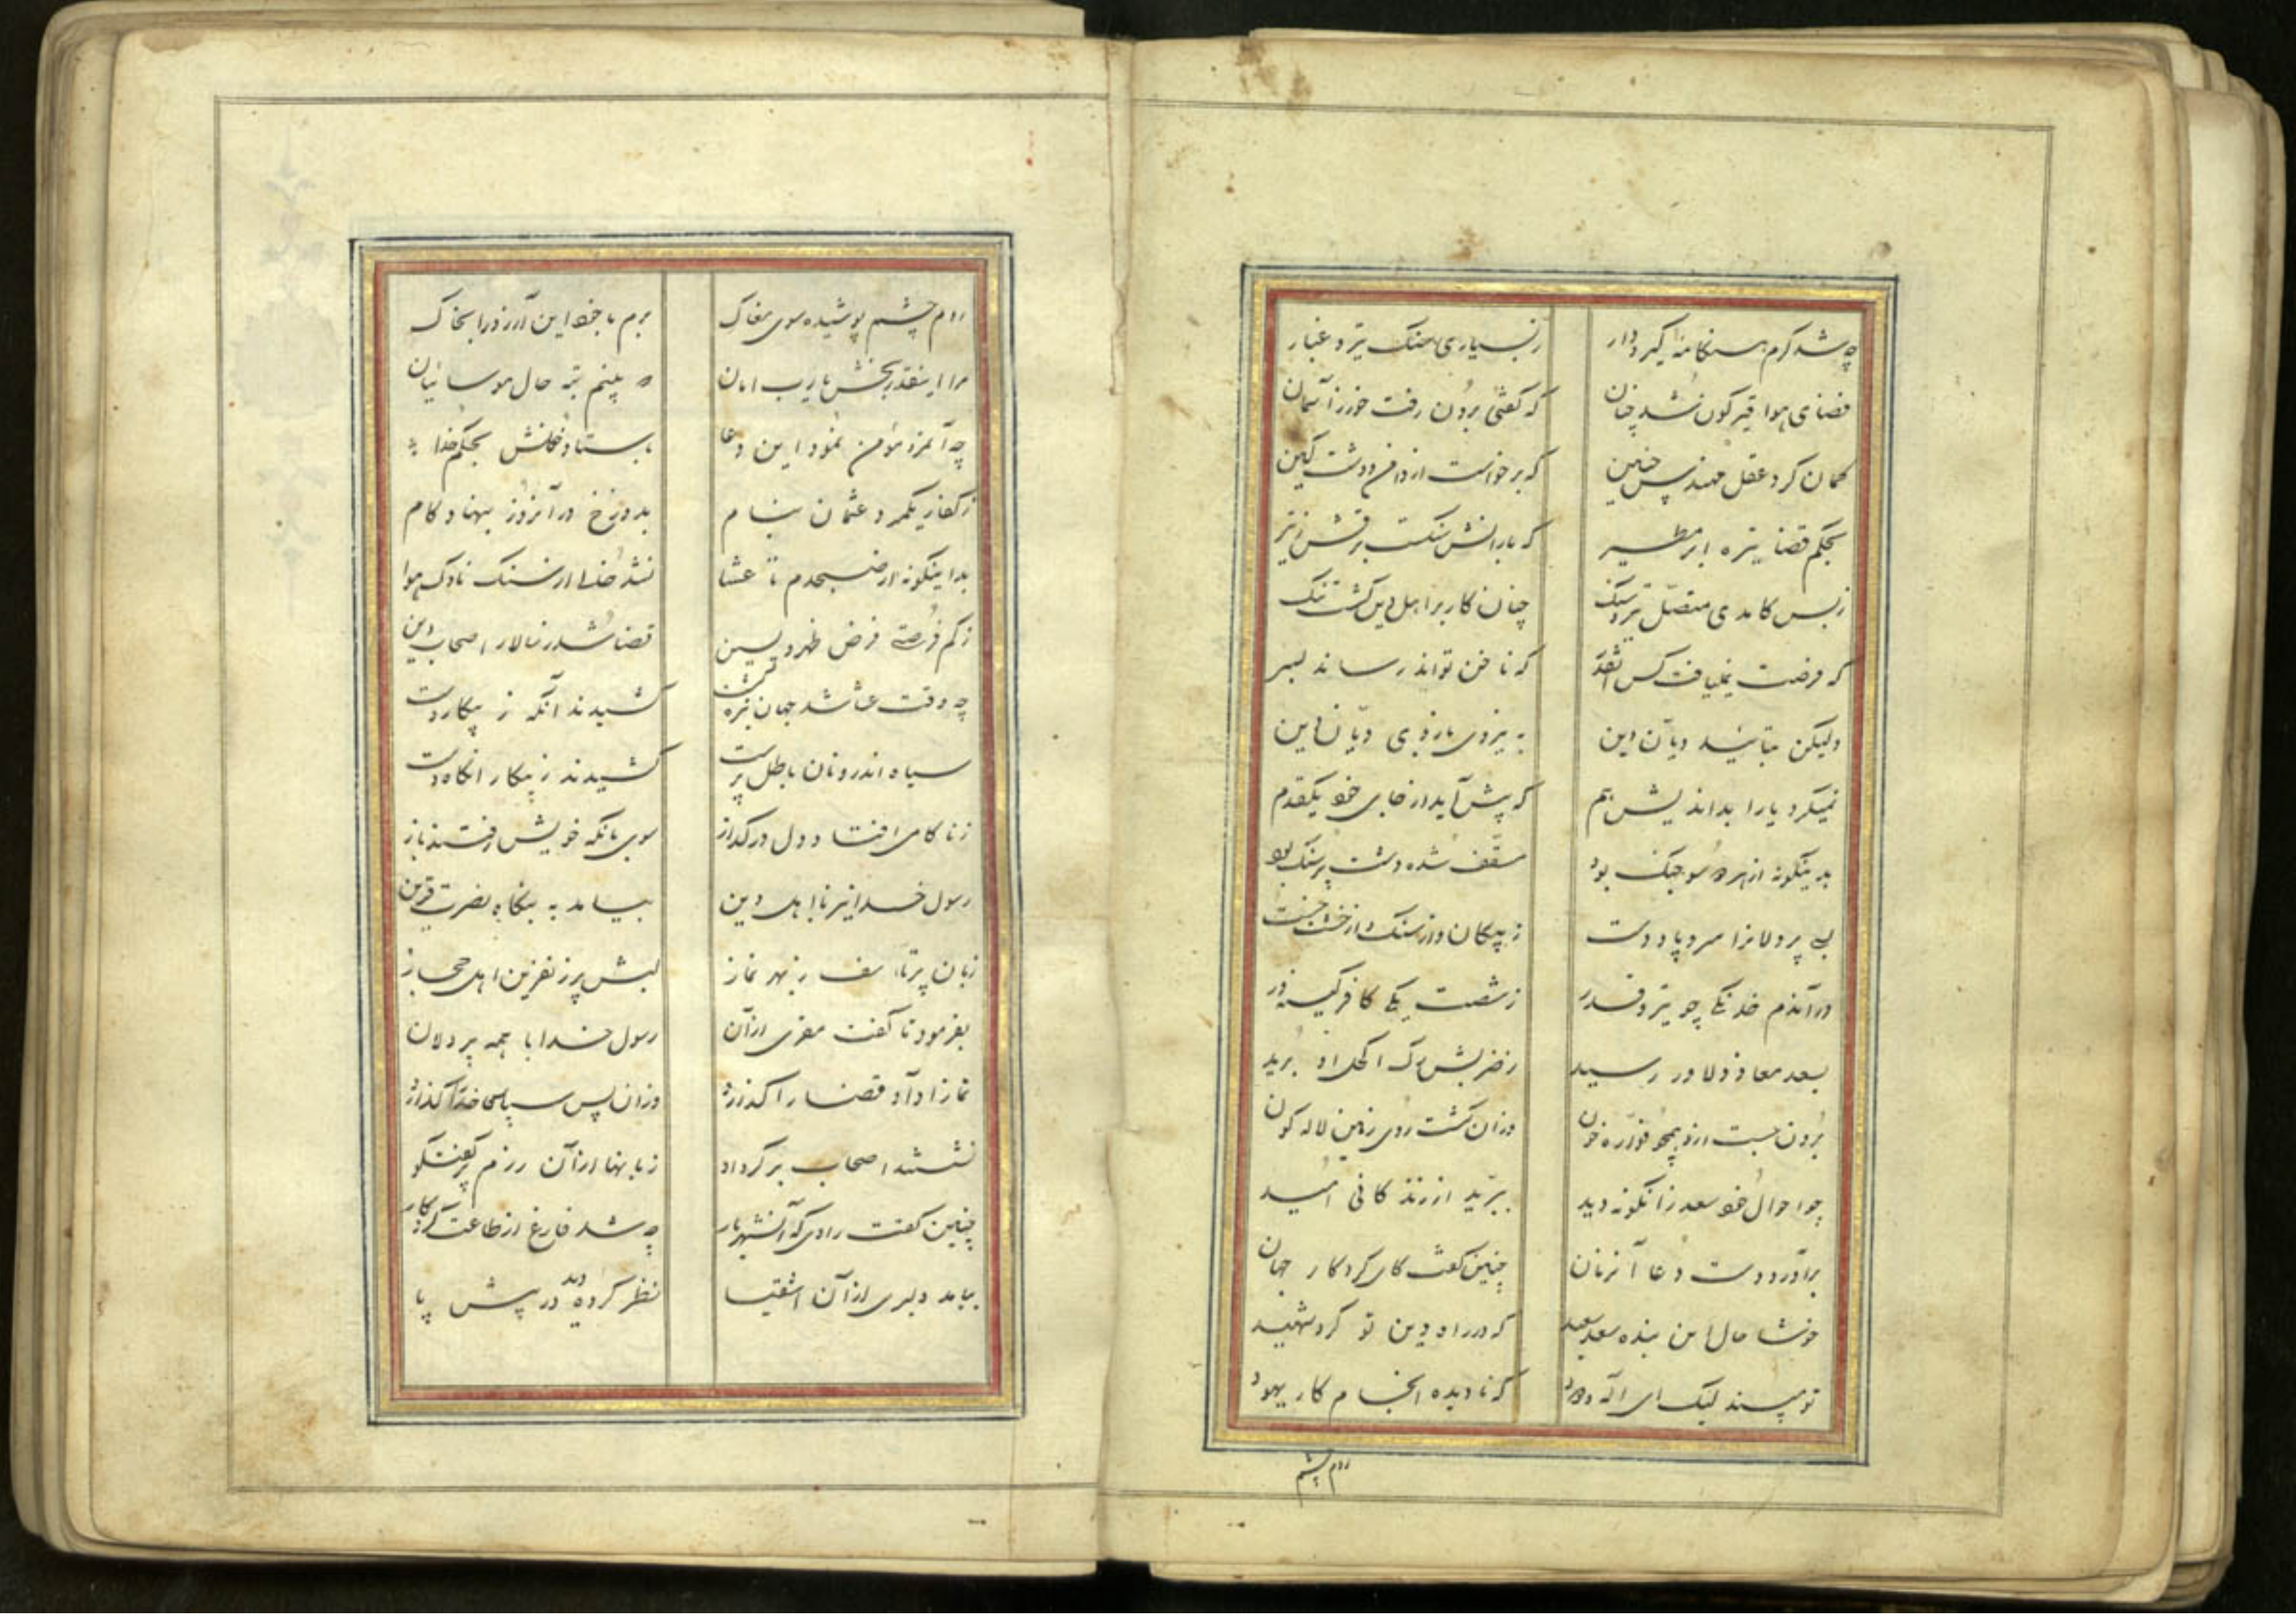 چه شد کرم هنکامهٔ کیر و دار ز بسیاری جنک تیر و غبار
فضای هوا قیرکون شد چنان که کفتی برون رفت خور ز آسمان
کمان کرد عقل مهندس چنین که برخواست از دامن دشت کین
بحکم قضا تیره ابر مطیر که بارانش سنکست و برقش ز تیر
ز بس کامدی متصل تیر و سنک چنان کار بر اهل دین کشت تنک
که فرصت نمییافت کس آنقدر که ناخن تواند رساند بسر
ولیکن بتائید دیان دین به نیروی بازوی دیان دین
نمیکرد یارا بداندیش هم که پیش آید از جای خود یکقدم
بدینکونه از هر دو سو جنک بود مسقف شده دشت پر سنک بود
بسی پردلانرا سر و پا و دست ز پیکان و از سنک و از خشت خست
در آندم خدنکی چو تیر قدر ز شصت یکی کافر کینه‌ور
بسعد معاذ دلاور رسید ز ضربش رک اکحل او برید
برون جست ازو همچو فواره خون وزان کشت روی زمین لاله کون
چو احوال خود سعد زانکونه دید ببرید از زندکانی امید
برآورد دست دعا آنزمان چنین کفت کای کردکار جهان
خوشا حال این بنده سعد سعید که در راه دین تو کردد شهید
تو مپسند لیک ای اله ودود که نادیده انجام کار یهود
روم چشم
روم چشم پوشیده سوی مغاک برم با خود این آرزو را بخاک
مرا اینقدر بخش یارب امان که بینم تبه حال موسائیان
چه آنمرد مؤمن نمود این دعا باستاد خونش بحکم خدا
ز کفار یکمرد عثمان بنام بدوزخ در آنروز بنهاد کام
بداینکونه از صبحدم تا عشا نشد خالی از سنک ناوک هوا
ز کم فرصتی فرض ظهر و پسین قضا شد ز سالار اصحاب دین
چه وقت عشا شد جهان تیره کشت کشیدند آنکه ز پیکار دست
سیاه اندرونان باطل پرست کشیدند ز پیکار آنکاه دست
ز ناکامی افتاد دل در کداز سوی بانکه خویش رفتند باز
رسول خدا نیز با اهل دین بیامد به بنکاه نصرت قرین
زبان پر تاسف ز بهر نماز لبش پر ز نفرین اهل حجاز
بفرمود تا کفت مقری اذان رسول خدا با همه پردلان
نماز ادا و قضا را کذارد وزان پس سپاس خدا کذارد
نشستند اصحاب بر کرد او زبانها از آن رزم پر کفتکو
چنین کفت راوی که آنشهریار چه شد فارغ از طاعت کردکار
بیامد دلیری از آن اشقیا نظر کرده دید در پیش پا